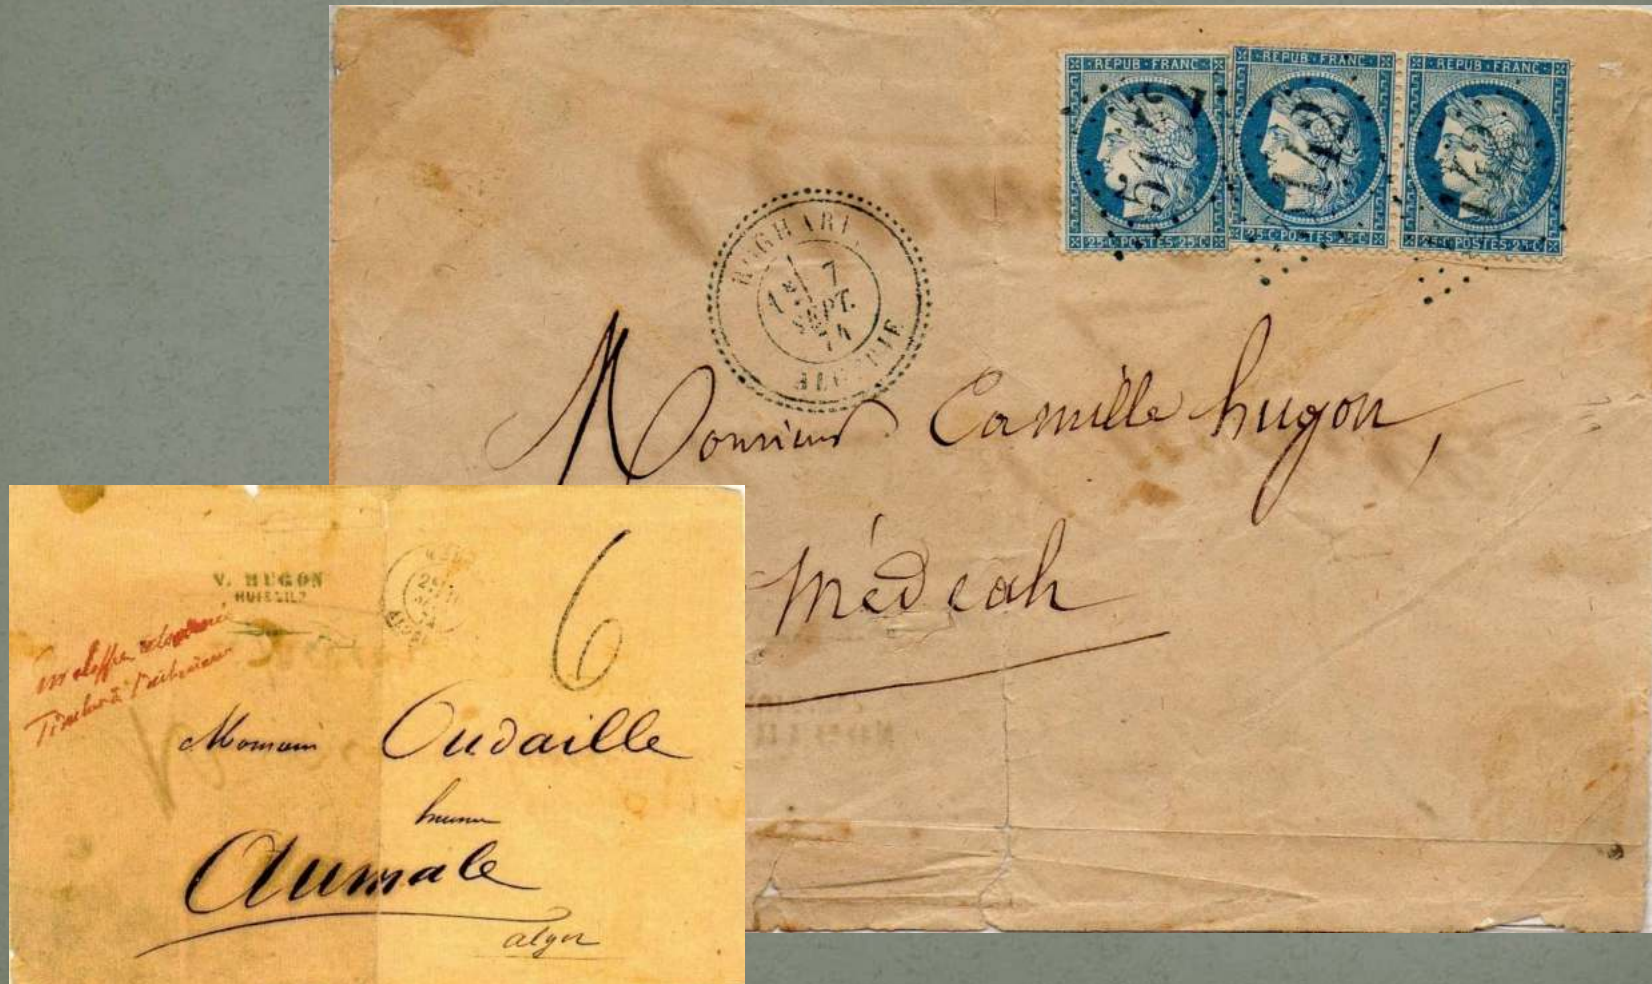 REPUB·FRANC
25·C·POSTES·25·C
REPUB·FRANC
25·C·POSTES·25·C
REPUB·FRANC
25·C·POSTES·25·C
5142
142
142
BOGHARI
1E 7
SEPT.
74
ALGERIE
Monsieur Camille hugon,
Médeah
V. HUGON
HUISSIER
6
Oudaille
Aumale
alger